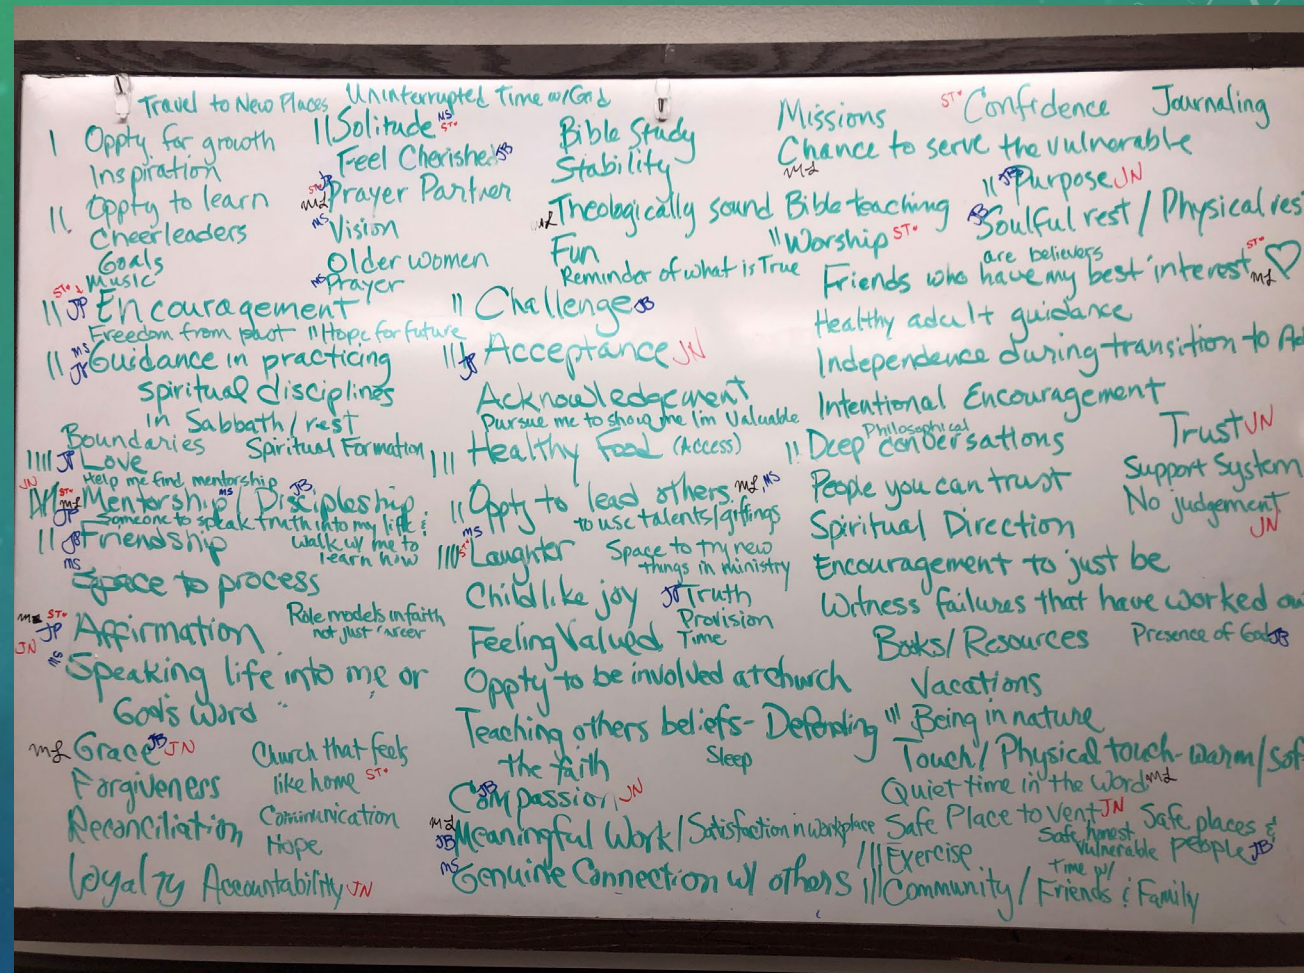 Travel to New Places
| Oppty for growth
Inspiration
|| Oppty to learn
Cheerleaders
Goals
ST* Music
|| JP Encouragement
Freedom from past || Hope for future
|| MS Guidance in practicing
spiritual disciplines
in Sabbath/rest
Boundaries Spiritual Formation
|||| JP Love
Help me find mentorship
JN ST* ML JP Mentorship MS / Discipleship JB
Someone to speak truth into my life &
walk w/ me to
learn how
|| JB MS Friendship
Space to process
ST* JP JN Affirmation
Role models in faith
not just career
MS Speaking life into me or
God's word "
ML Grace JB JN
Forgiveness
Reconciliation
Loyalty Accountability JN
Church that feels
like home ST*
Communication
Hope
Uninterrupted Time w/God
|| Solitude MS ST*
Feel Cherished JB
ST* JP ML Prayer Partner
MS Vision
Older women
MS Prayer
Bible Study
Stability
ML Theologically sound Bible teaching
Fun
Reminder of what is True
|| Challenge JB
||| JP Acceptance JN
Acknowledgement
Pursue me to show me I'm Valuable
||| Healthy Food (Access)
|| Oppty to lead others ML, MS
to use talents/giftings
MS |||| ST* Laughter
Space to try new
things in ministry
Childlike joy
JP Truth
Provision
Time
Feeling Valued
Oppty to be involved at church
Teaching others beliefs - Defending
the faith
Sleep
JB Compassion JN
ML JB Meaningful Work / Satisfaction in workplace
MS Genuine Connection w/ others
Missions
ST* Confidence
Journaling
Chance to serve the vulnerable
ML
|| JB Purpose JN
JB Soulful rest / Physical res
|| Worship ST*
are believers
Friends who have my best interest ST* ML ♡
Healthy adult guidance
Independence during transition to Ad
Intentional Encouragement
Philosophical
|| Deep conversations
Trust JN
People you can trust
Support System
No judgement
JN
Spiritual Direction
Encouragement to just be
Witness failures that have worked ou
Books/Resources
Presence of God JB
Vacations
||| Being in nature
Touch / Physical touch - warm/sof
Quiet time in the Word ML
Safe Place to vent JN
Safe places &
people JB
Safe, honest,
vulnerable
|||| Exercise
Time w/
||| Community / Friends & Family